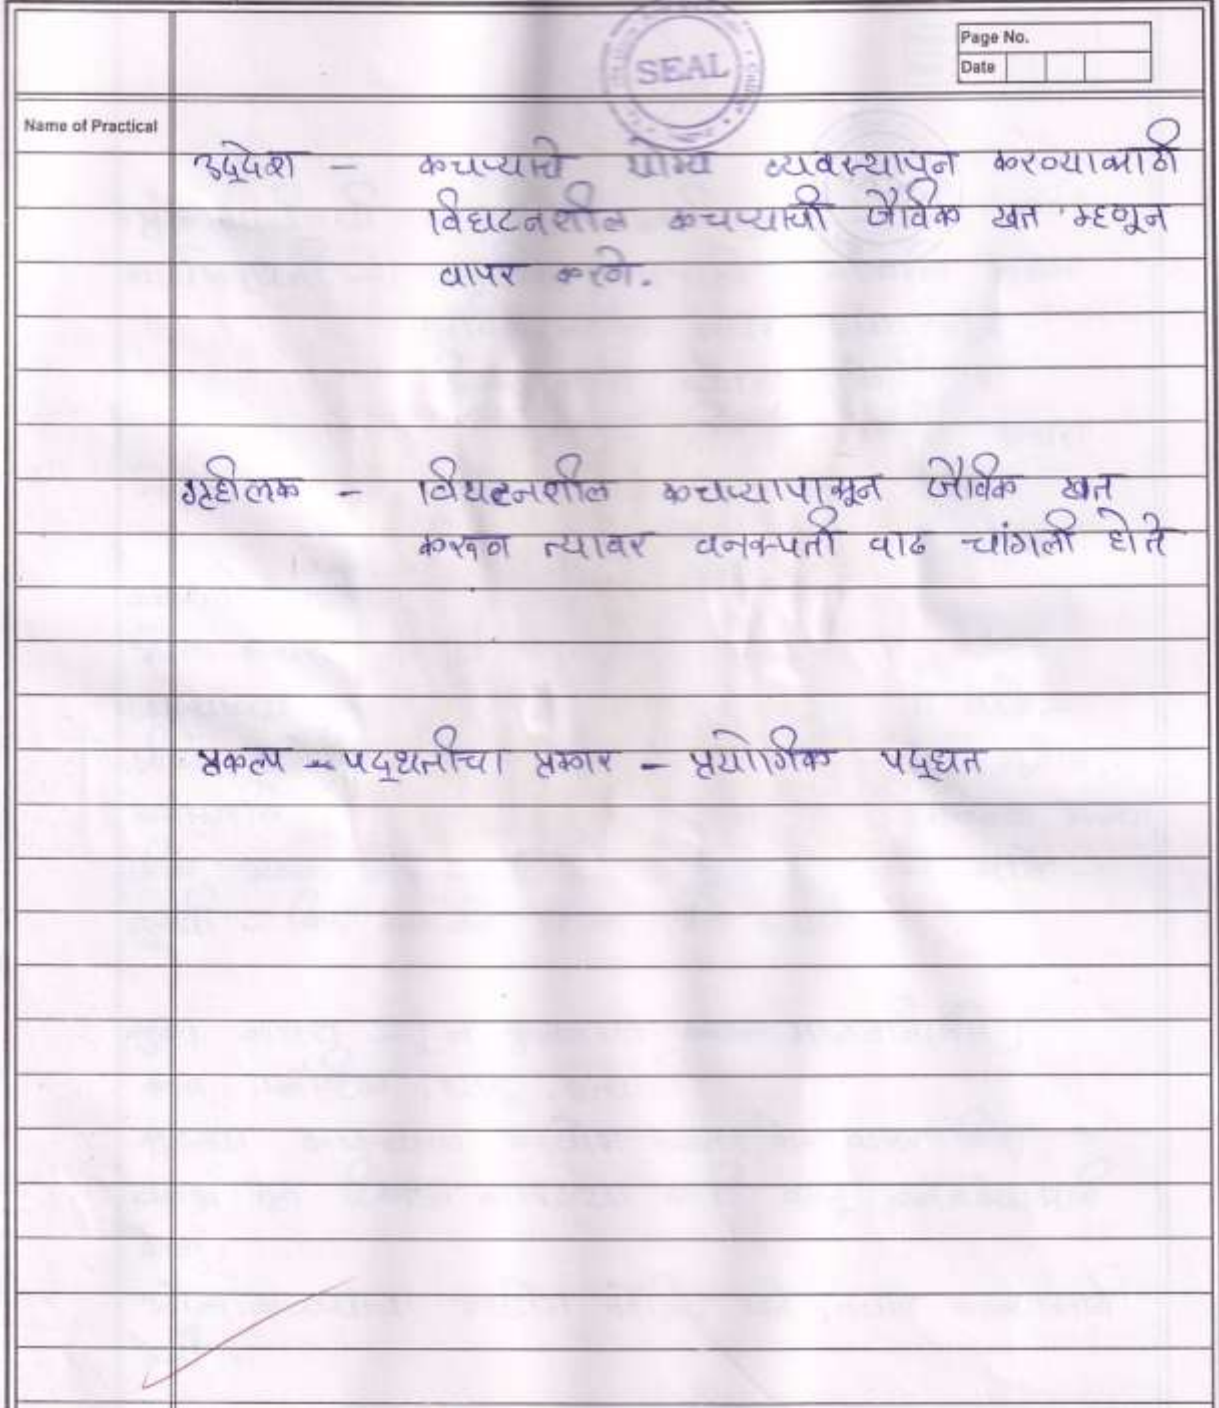 SEAL
Page No.
Date
Name of Practical
उद्देश – कचऱ्याचे योग्य व्यवस्थापन करण्यासाठी
विघटनशील कचऱ्याची जैविक खत म्हणून
वापर करणे.
गृहीतक – विघटनशील कचऱ्यापासून जैविक खत
करून त्यावर वनस्पती वाढ चांगली होते
प्रकल्प – पद्धतीचा प्रकार – प्रयोगिक पद्धत